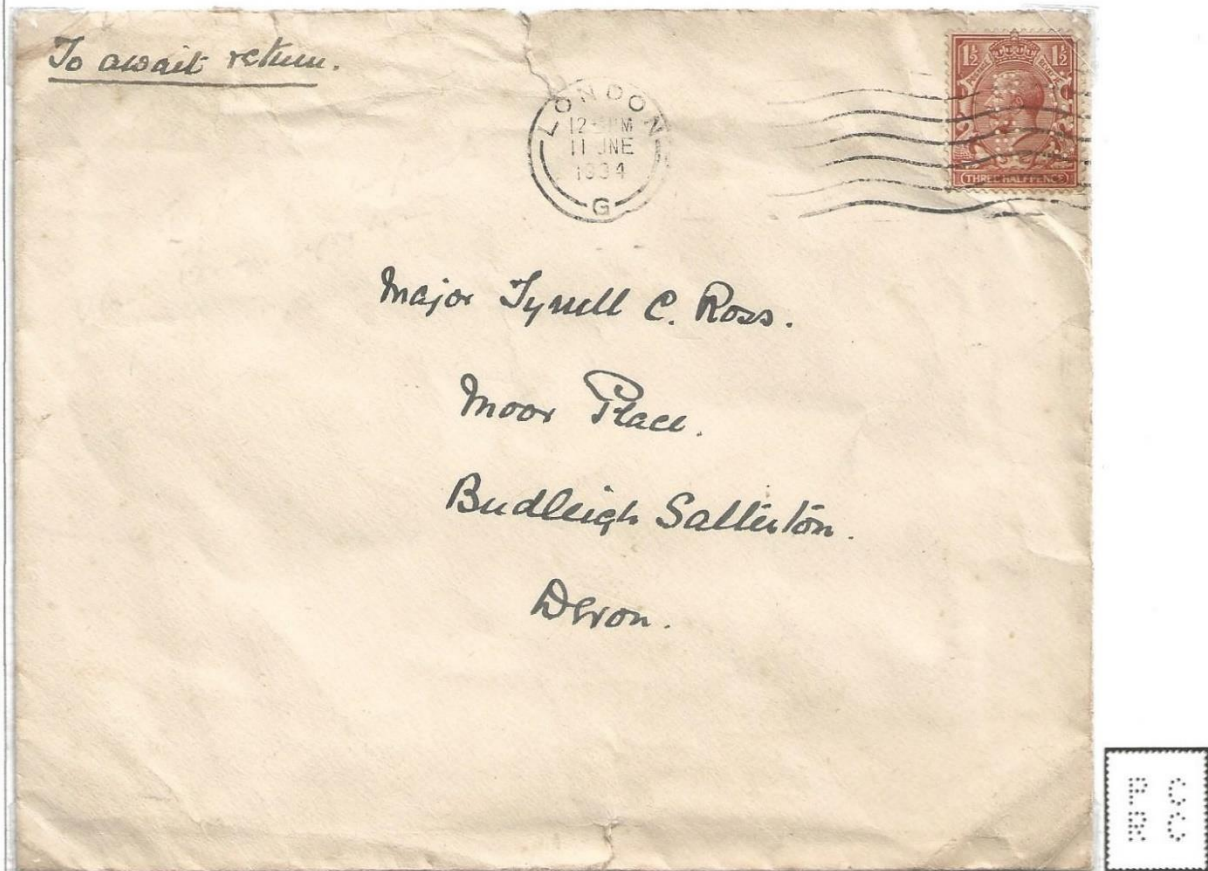 To await return.
LONDON
11 JNE
1934
G
1½ 1½
THREE HALFPENCE
Major Tyrell C. Ross.
Moor Place.
Budleigh Salterton.
Devon.
P C
R C